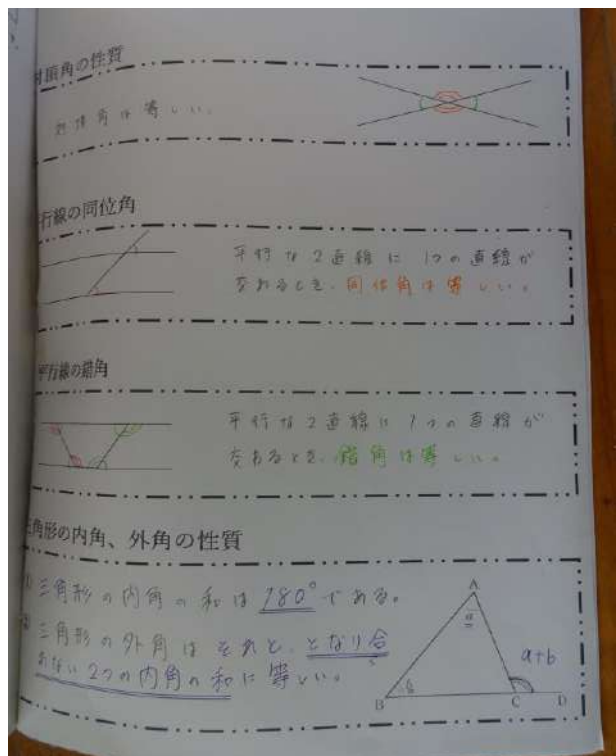 対頂角の性質
対頂角は等しい。
平行線の同位角
平行な2直線に1つの直線が
交わるとき、同位角は等しい。
平行線の錯角
平行な2直線に1つの直線が
交わるとき、錯角は等しい。
三角形の内角、外角の性質
三角形の内角の和は180°である。
三角形の外角はそれと、となり合
わない2つの内角の和に等しい。
A
a
a+b
b
B
C
D